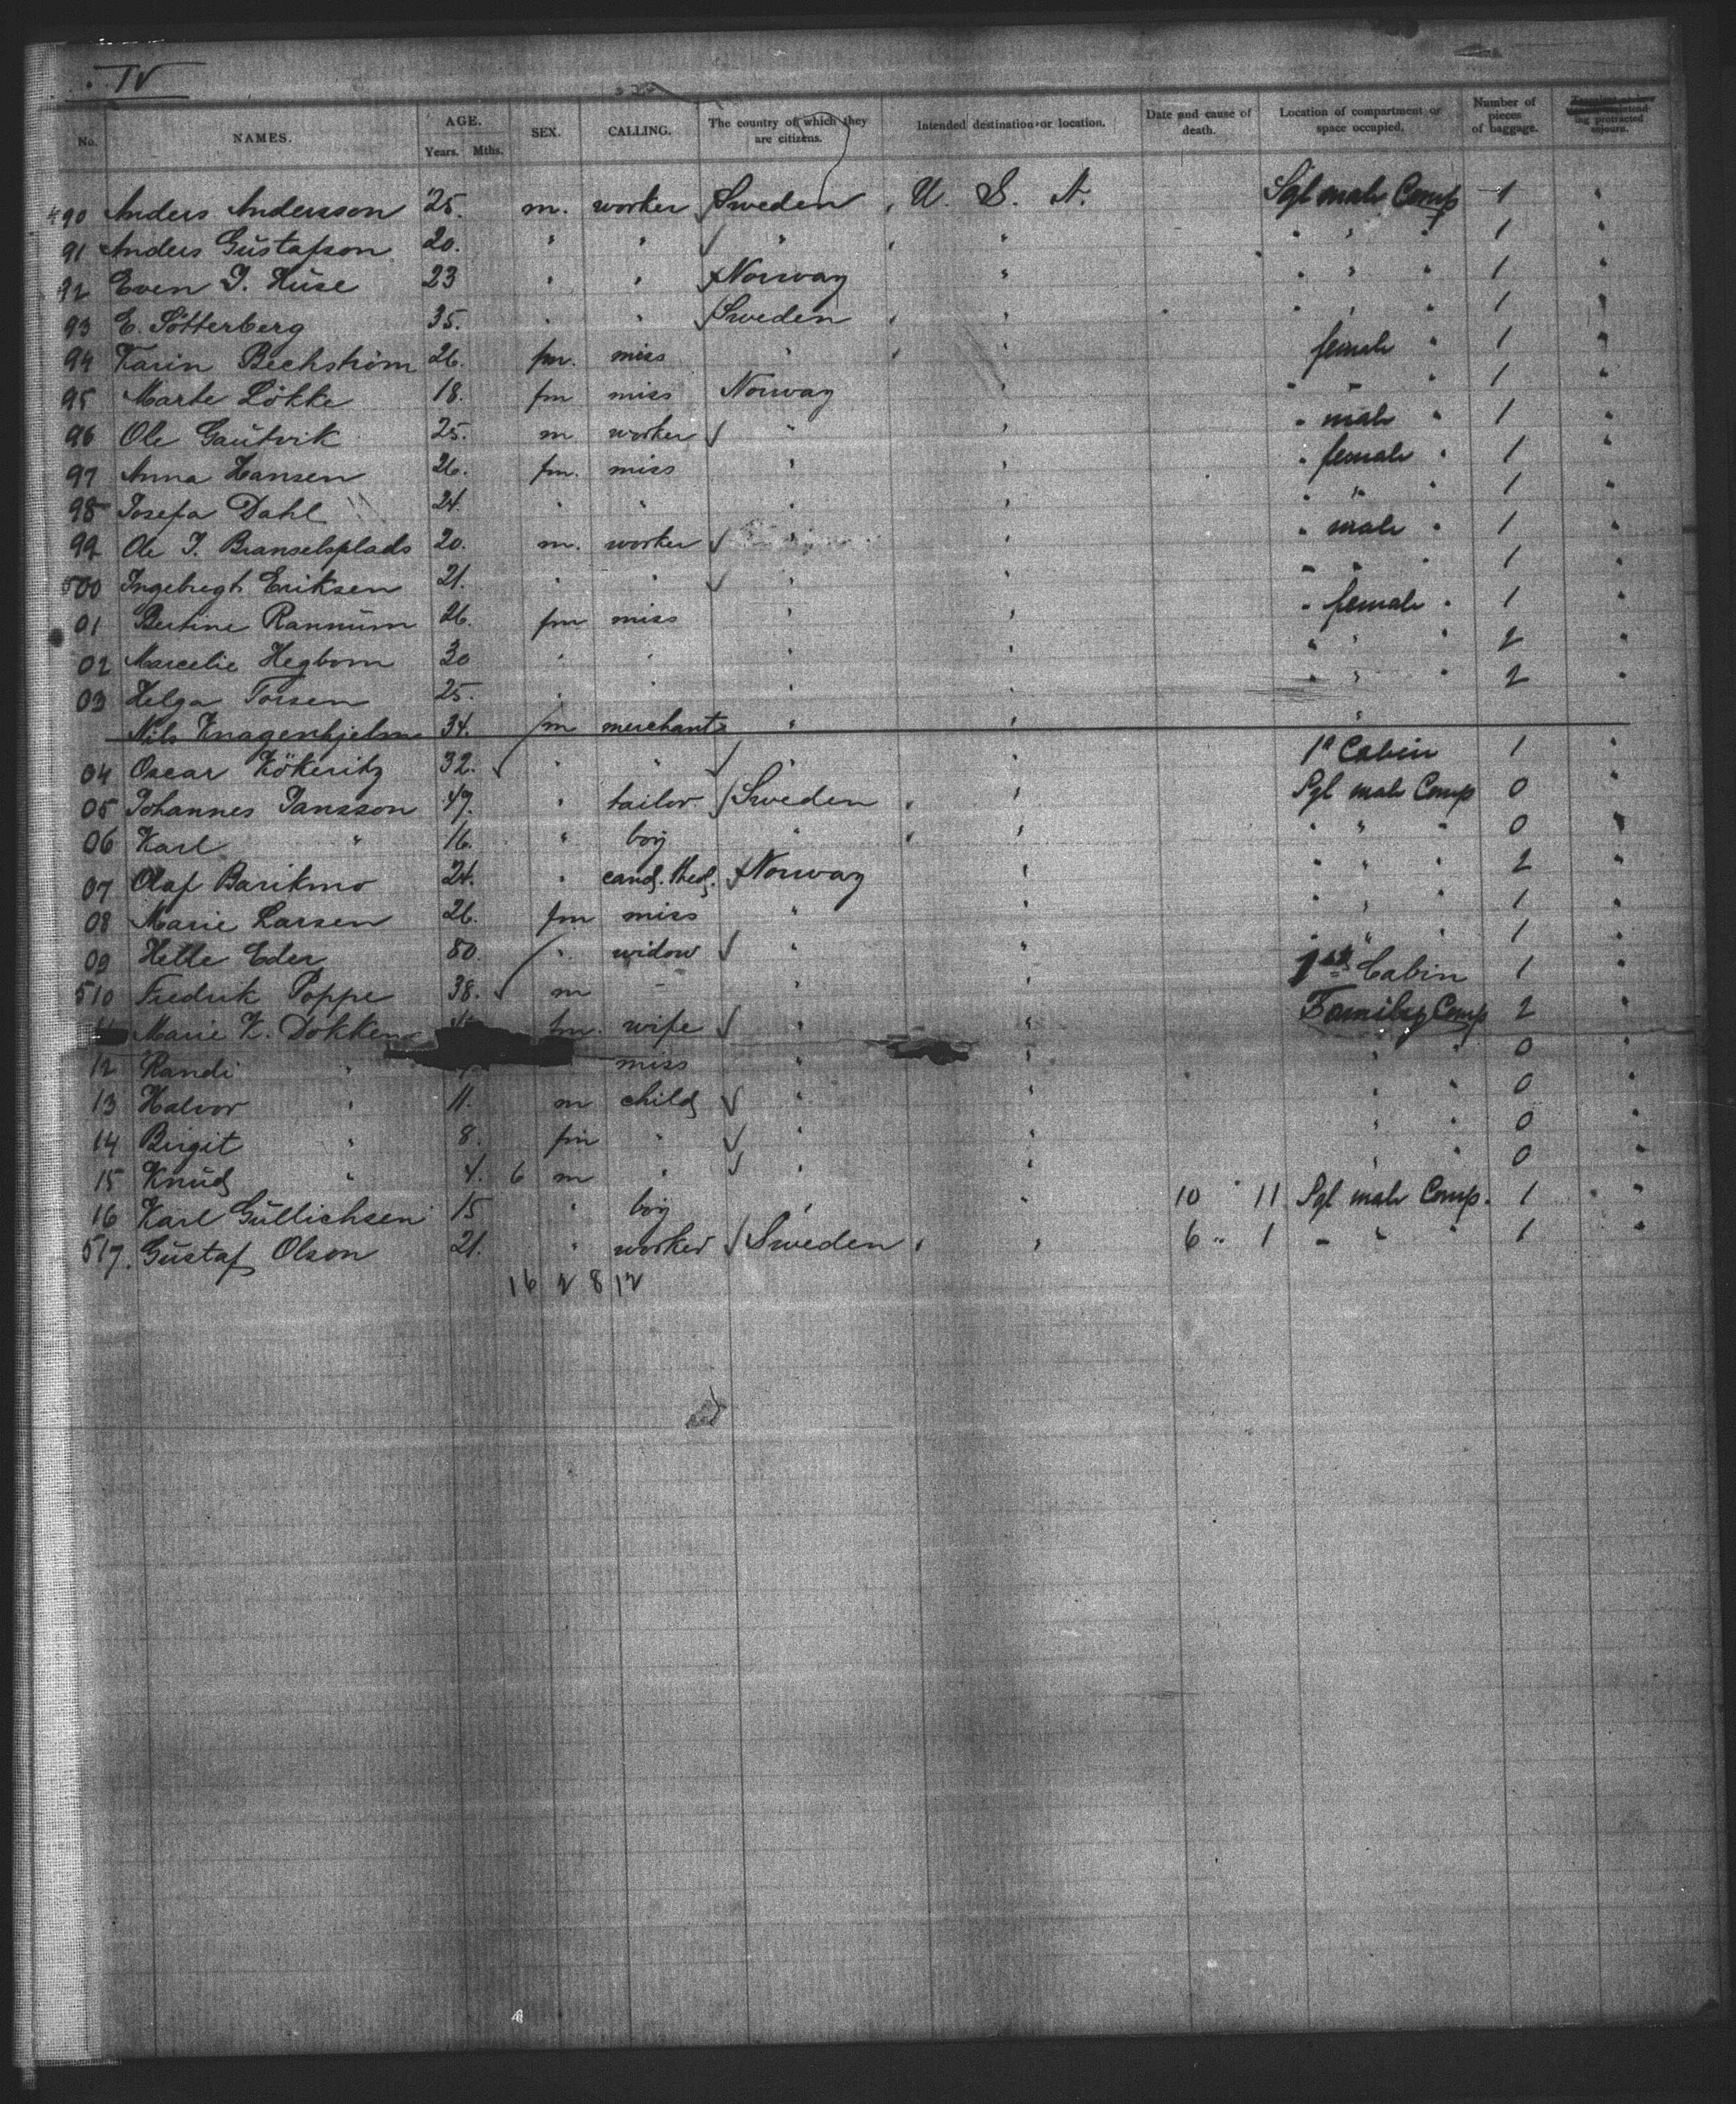 IV
No. NAMES. AGE. Years. Mths. SEX. CALLING. The country of which they are citizens. Intended destination or location. Date and cause of death. Location of compartment or space occupied. Number of pieces of baggage. ing protracted sojourn.
490 Anders Andersson 25. m. worker Sweden U. S. A. Sgl male Comp 1 "
91 Anders Gustafson 20. " " " " " " " 1 "
92 Even J. Huse 23 " " Norway " " " " 1 "
93 E. Sötterberg 35. " " Sweden " " " " 1 "
94 Karin Beckström 26. fm. miss " " female " 1 "
95 Marte Lökke 18. fm miss Norway " " " " 1 "
96 Ole Gautvik 25. m. worker " " " male " 1 "
97 Anna Hansen 26. fm. miss " " " female " 1 "
98 Josefa Dahl 24. " " " " " " " 1 "
99 Ole J. Branselsplads 20. m. worker " " " male " 1 "
500 Ingebregt Eriksen 21. " " " " " " 1 "
01 Bertine Rannum 26. fm miss " " " female " 1 "
02 Marcelie Hegbom 30 " " " " " " " 2 "
03 Helga Torsen 25. " " " " " " " 2 "
Nils Knagenhjelm 34. m merchant " " "
04 Oscar Kökeritz 32. " " " " 1st Cabin 1 "
05 Johannes Jansson 47. " tailor Sweden " Sgl male Comp 0 "
06 Karl " 16. " boy " " " " " 0 "
07 Olaf Barikmo 24. " cand. theol. Norway " " " " 2 "
08 Marie Larsen 26. fm miss " " " " " 1 "
09 Helle Eder 80. " widow " " " " " 1 "
510 Fredrik Poppe 38. m - " " 1st Cabin 1 "
Marie K. Dokken fm. wife " " Family Comp 2 "
12 Randi " miss " " " " 0 "
13 Halvor " 11. m child " " " " 0 "
14 Birgit " 8. fm " " " " " 0 "
15 Knud " 4. 6 m " " " " " 0 "
16 Karl Gullichsen 15 " boy " " 10 " 11 Sgl male Comp. 1 "
517. Gustaf Olson 21. " worker Sweden " 6 " 1 " " " 1 "
16 2 8 12